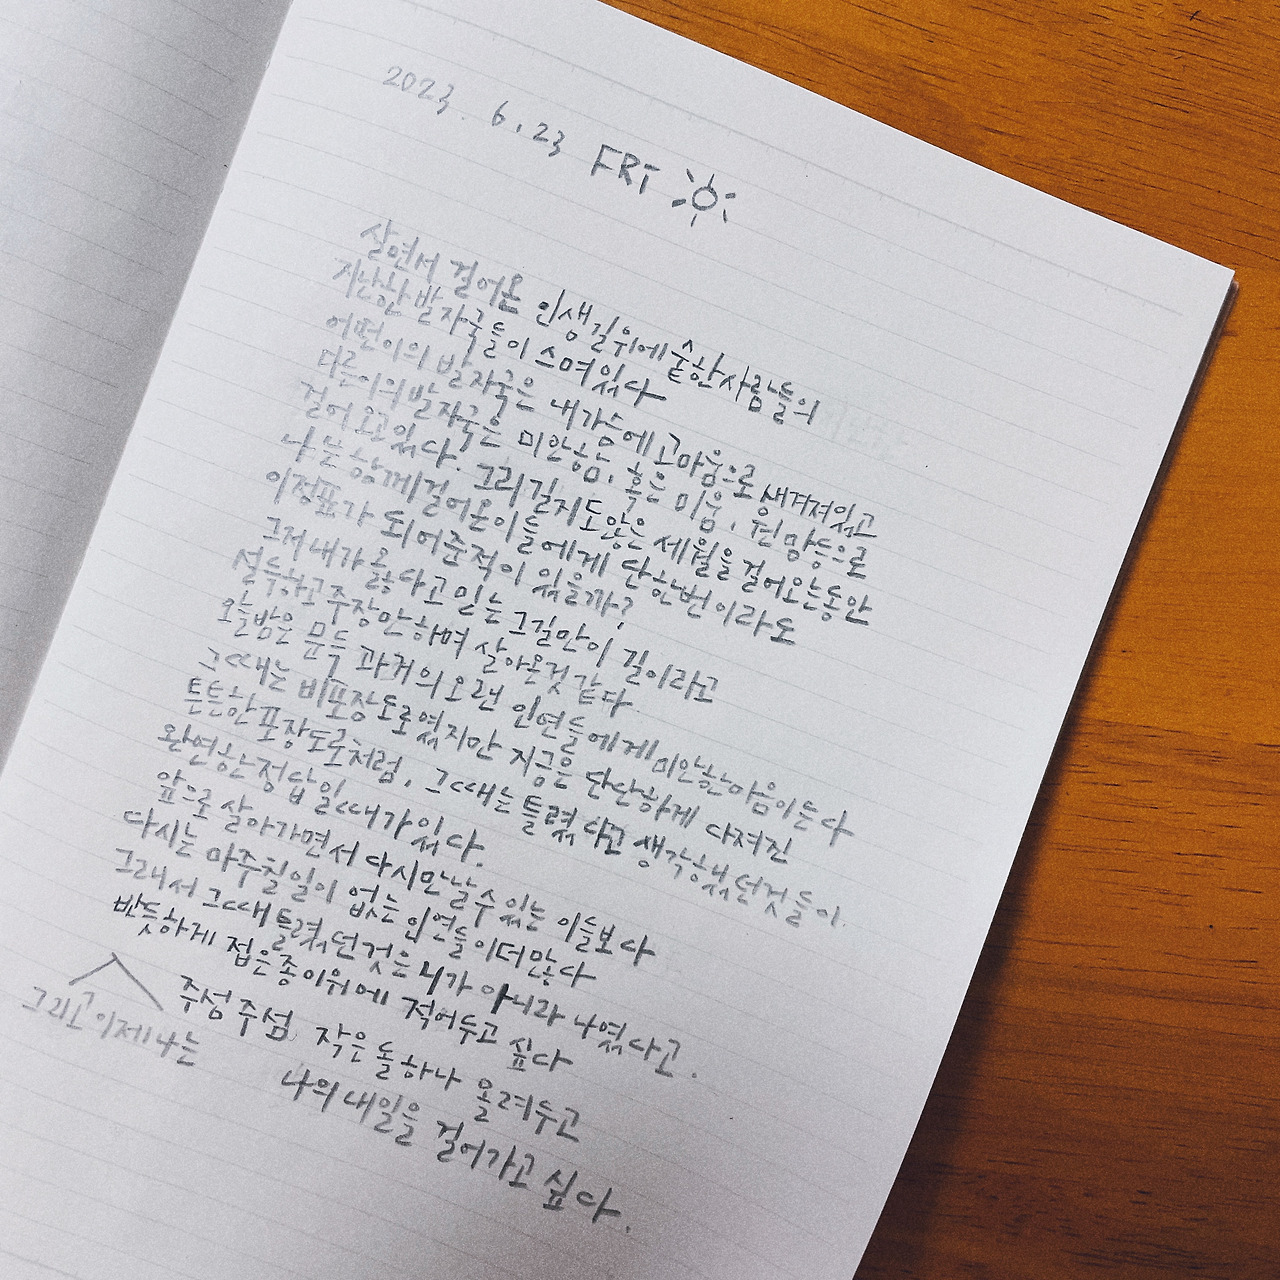 2023. 6. 23 FRI
살면서 걸어온 인생길위에 숱한사람들의
지난한 발자국들이 스며있다
어떤이의 발자국은 내가슴에 고마움으로 새겨져있고
다른이의 발자국은 미안함, 혹은 미움, 원망등으로
걸어오고있다. 그리 길지도않은 세월을 걸어오는동안
나는 함께걸어온이들에게 단한번이라도
이정표가 되어준적이 있을까?
그저 내가 옳다고 믿는 그길만이 길이라고
설득하고 주장만하며 살아온것 같다.
오늘밤은 문득 과거의오랜 인연들에게 미안한마음이든다
그때는 비포장도로였지만 지금은 단단하게 다져진
튼튼한포장도로처럼, 그때는 틀렸다고 생각했던것들이
완연한정답일때가있다.
앞으로 살아가면서 다시만날수있는 이들보다
다시는 마주칠일이 없는 인연들이더많다
그래서 그때 틀렸던것은 니가 아니라 나였다고.
반듯하게 접은종이위에 적어두고 싶다
그리고 이제 나는
주섬주섬 작은돌하나 올려두고
나의 내일을 걸어가고 싶다.